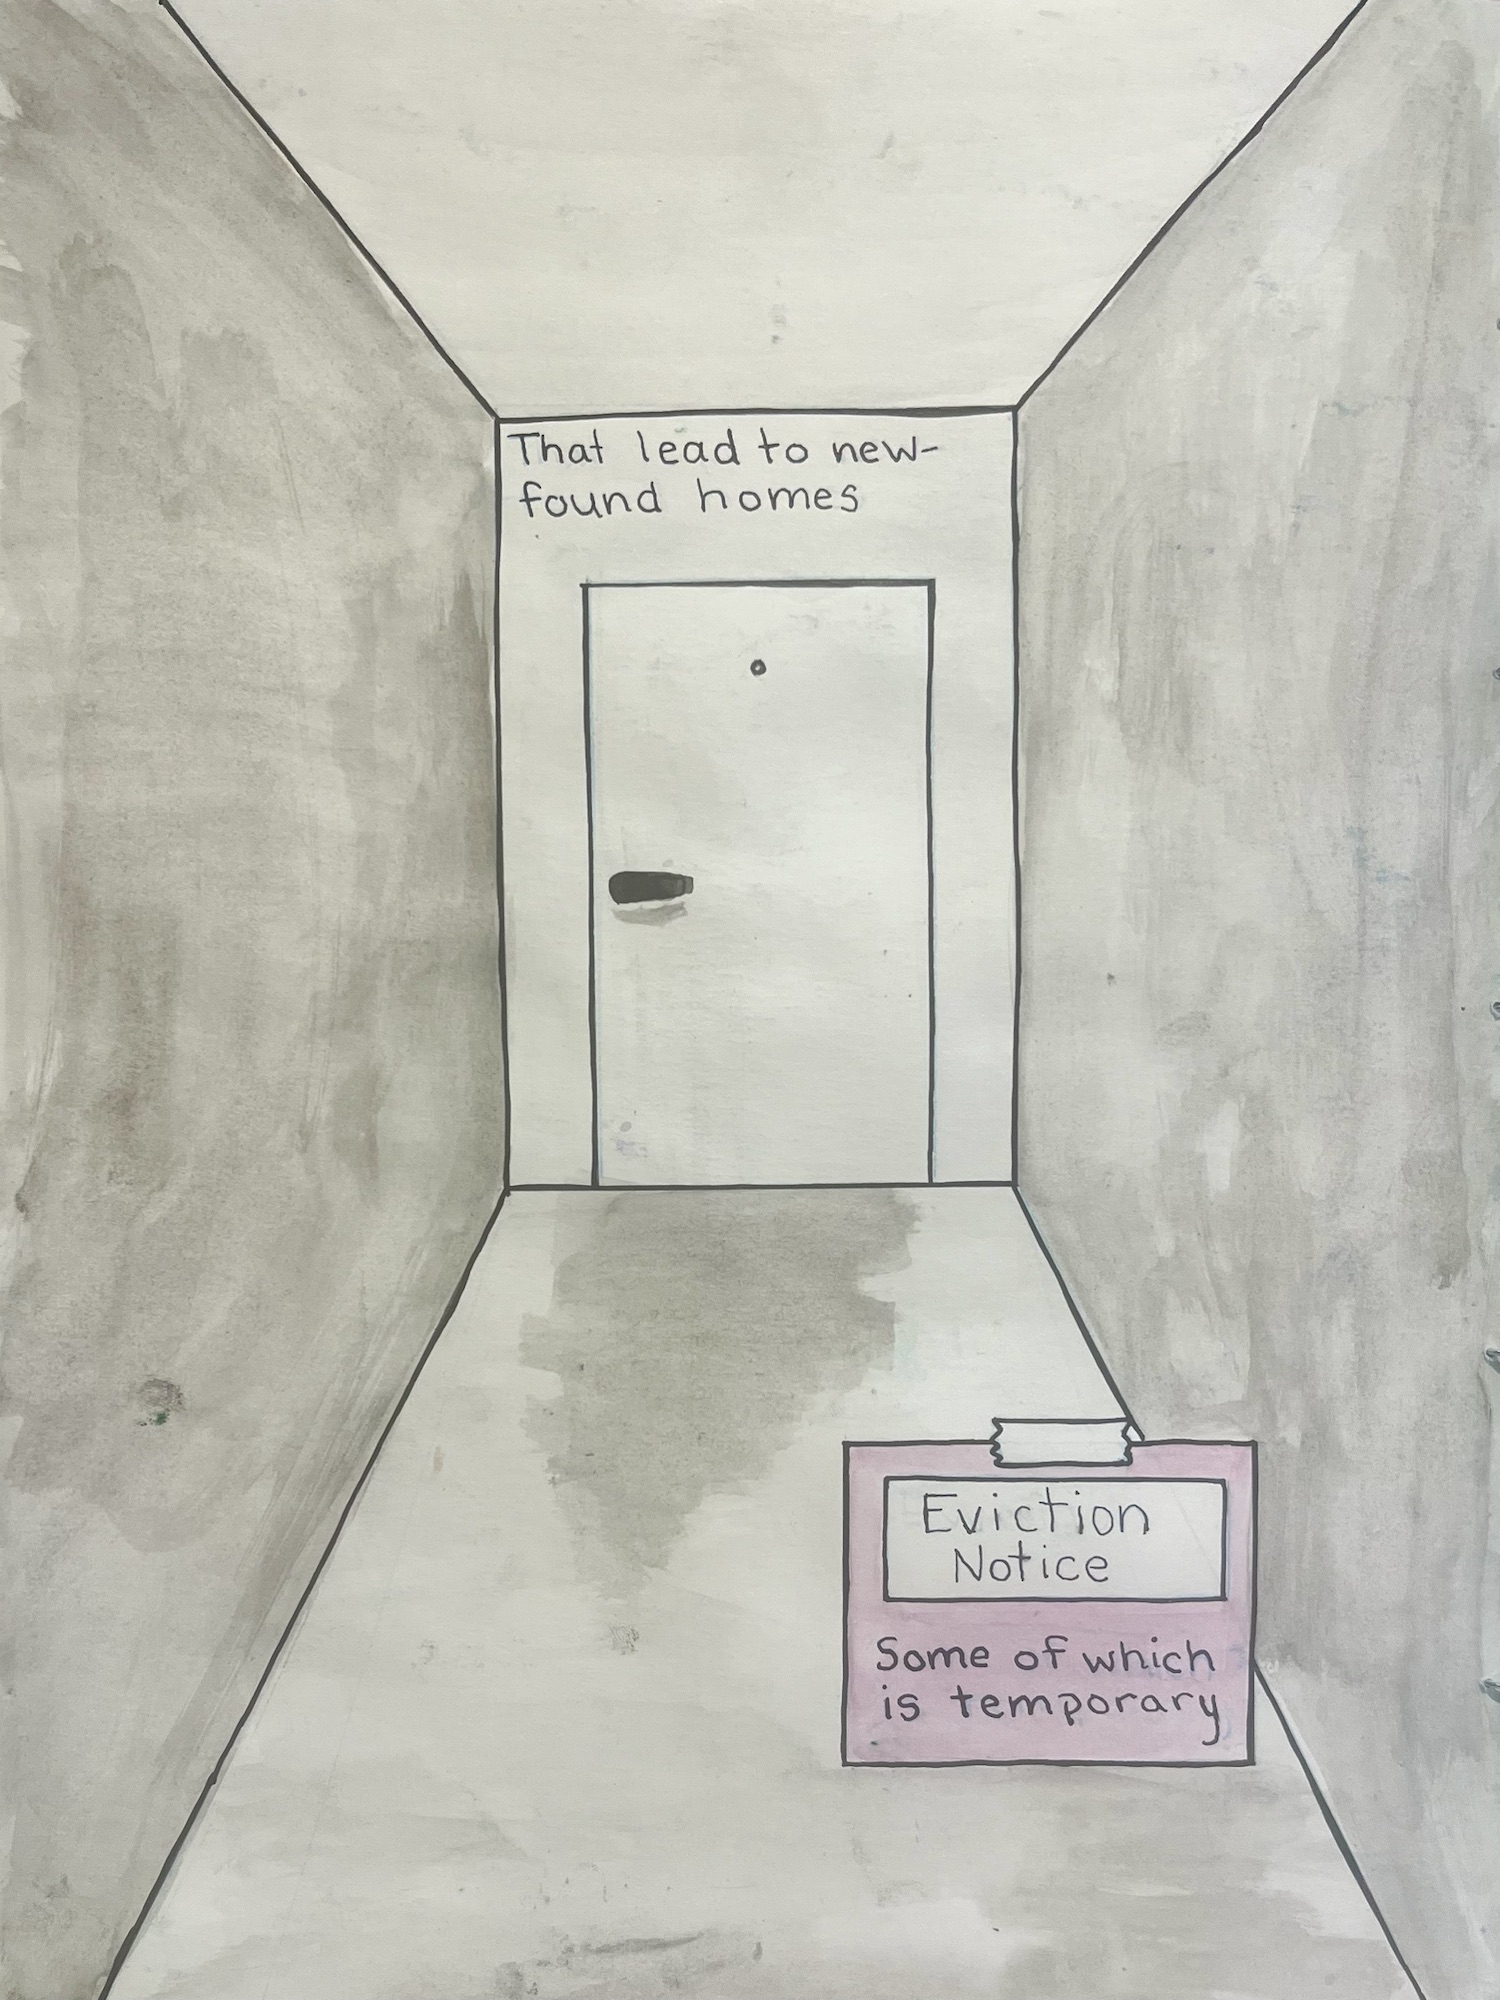 That lead to new-
found homes
Eviction
Notice
Some of which
is temporary